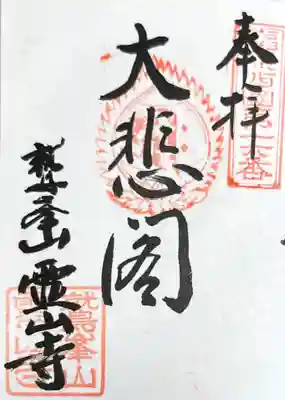 奉拝
大悲閣
鷲峯山 霊山寺